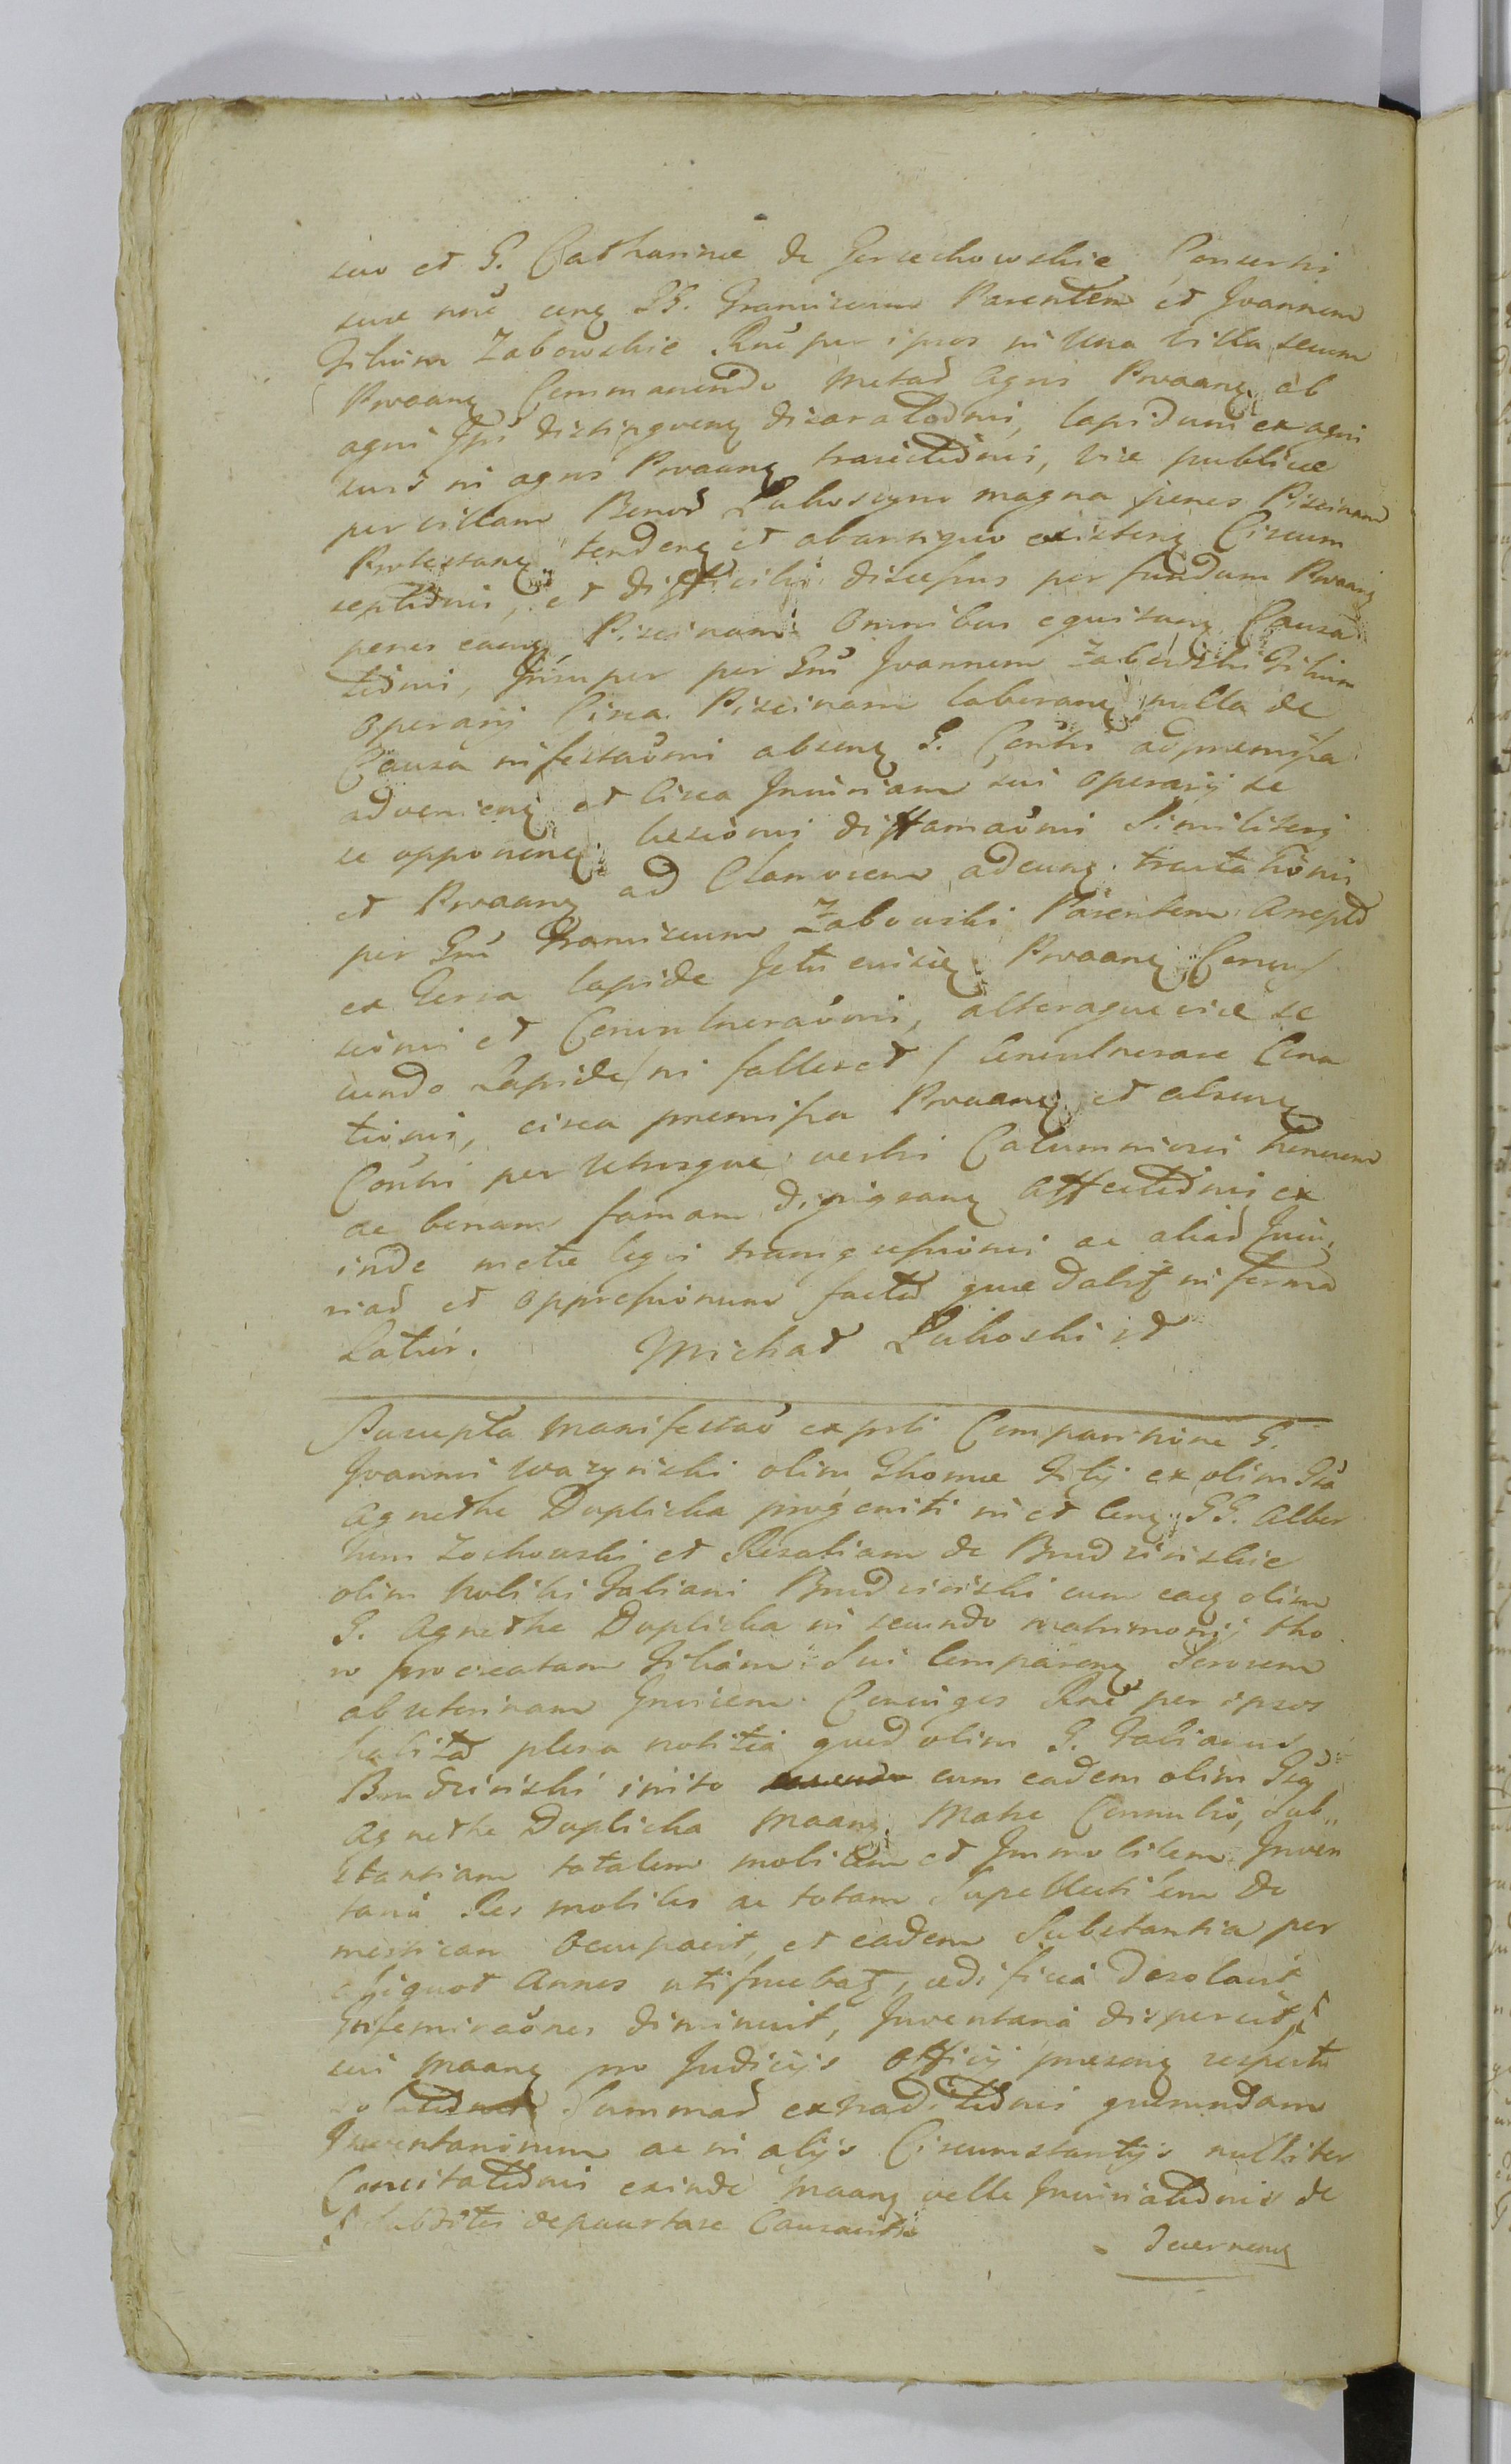 suo et G. Catharinæ de Gorzechowskie Consorti
suæ noie cong GG. Franciscum Parentem et Joannem
Filium Zabowskie Rne per ipsos in una villa secum
Prvaang Commanendo metas agris Prvaang ab
agris Ipsi distingveng disaratoinis, lapidum ex agris
suis in agros Prvaang traiectionis, viæ publicæ
per villam Bonor Lukoszyno magna penes Piscinam
Protestang tendeng et abantiquo existeng Circum
septionis, et difficilis discessus per fundum Prvaang
penes eang Piscinam Omnibus equitang Causa
tionis, Insuper per Gnu Joannem Zabowski Filium
operarij circa Piscinam laborang nulla de
Causa infestaonis abseng G. Conthi ad præmissa
advenieng et circa Injuriam sui operarij se
se opponeng læsionis diffamaonis Similiterq
et Prvaang ad Clamorem adeung tractationis
per Gnu Franciscum Zabowski Parentem Arrepto
ex terra lapide Ictu eiusq Prvaang Concus
sionis et Convulneraonis, alteraque vice se
cundo Lapide ni falleret / Convulnerare Cona
tionis, circa præmissa Prvaang et abseng
Conthi per utrosque verbis Calumniosis honorem
ac bonam famam denigrang affectionis ex
inde metæ legis transgressionis ac alias Inju
rias et oppressionum factas quæ dabit in forma
Latius. Michał Lukoski id

Suscepta manifestao ex psli Comparitione G.
Joannis Wazynski olim Thomæ Filij ex olim Gsa
Agnethe Duplicka progeniti in et cong GG. Alber
tum Zochowski et Rosaliam de Brudzinskie
olim Nobilis Fabiani Brudzinski cum eaq olim
G. Agnethe Duplicka in secundo matrimonij tho
ro procreatam Filiam Sui Compareng Sororem
ab uterinam Invicem Coniuges Rne per ipsos
habitæ plena notitia quod olim G. Fabianus
Brudzinski inito cum eadem olim Gsa
Agnethe Duplicka Maang Matre Connubio, Sub
stantiam totalem mobilem et Immobilem Inven
taria Res mobiles ac totam Supellectilem do
mesticam Occupavit, et eadem Substantia per
aliquot Annos utifruebat, ædificia desolavit
Insemiraones diminuit, Inventaria dispersit
sui Maang pro Judicijs Officij præseng respectu
Summas extraditionis quorundam
Inventariorum ac in alijs Circumstantijs nulliter
Concitationis exinde Maang velle Iniuriationis de
Subditis depauctare Causavit
Decerneng